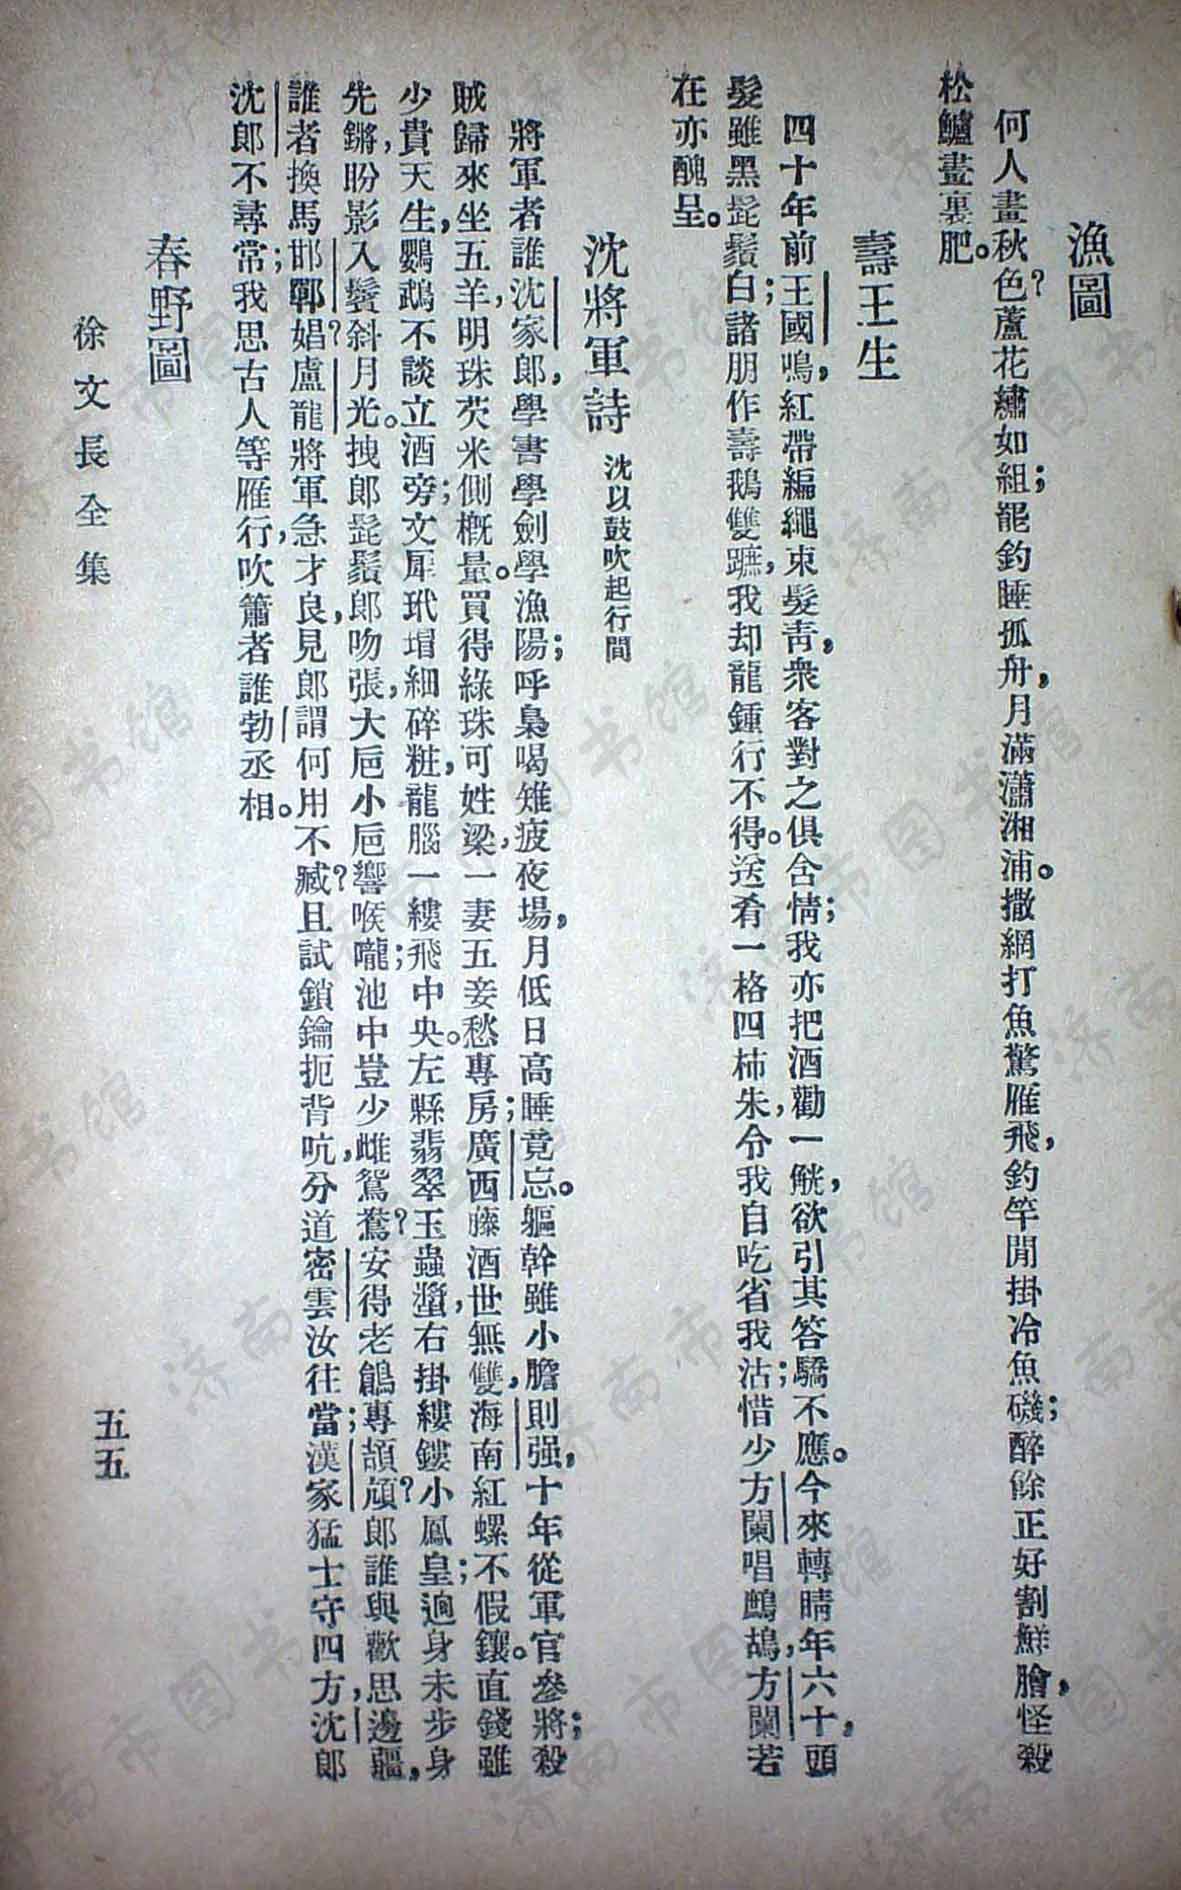 漁圖
何人畫秋色?蘆花繡如組;罷釣睡孤舟,月滿瀟湘浦。撒網打魚驚雁飛,釣竿閒掛冷魚磯;醉餘正好割鮮膾,怪殺
松鱸畫裏肥。
壽王生
四十年前王國鳴,紅帶編繩束髮靑,衆客對之俱含情;我亦把酒勸一觥,欲引其答驕不應。今來轉睛年六十,頭
髮雖黑髭鬚白;諸朋作壽鵝雙蹠,我却龍鍾行不得。送肴一格四柿朱,令我自吃省我沽;惜少方闌唱鷓鴣,方闌若
在亦醜呈。
沈將軍詩 沈以鼓吹起行間
將軍者誰沈家郎,學書學劍學漁陽;呼梟喝雉疲夜場,月低日高睡竟忘。軀幹雖小膽則强,十年從軍官參將;殺
賊歸來坐五羊,明珠茨米側槪量。買得綠珠可姓梁,一妻五妾愁專房;廣西藤酒世無雙,海南紅螺不假鑲。直錢雖
少貴天生,鸚鵡不談立酒旁;文犀玳瑁細碎粧,龍腦一縷飛中央。左縣翡翠玉蟲蠁,右掛縷鏤小鳳皇;逈身未步身
先鏘,盼影入鬢斜月光。拽郞髭鬚郞吻張,大巵小巵響喉嚨;池中豈少雌鴛鴦?安得老鶬專頡頏?郎誰與歡思邊疆,
誰者換馬邯鄲娼?盧龍將軍急才良,見郎謂何用不臧?且試鎖鑰扼背吭,分道密雲汝往當;漢家猛士守四方,沈郎
沈郎不尋常;我思古人等雁行,吹簫者誰勃丞相。
春野圖
徐文長全集
五五